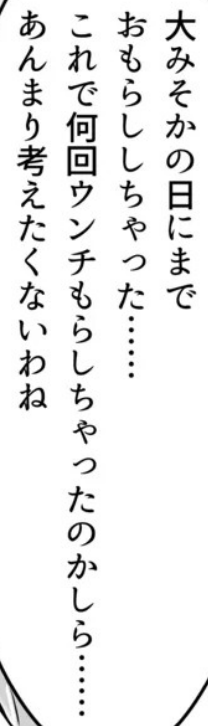 大みそかの日にまで
おもらししちゃった……
これで何回ウンチもらしちゃったのかしら……
あんまり考えたくないわね